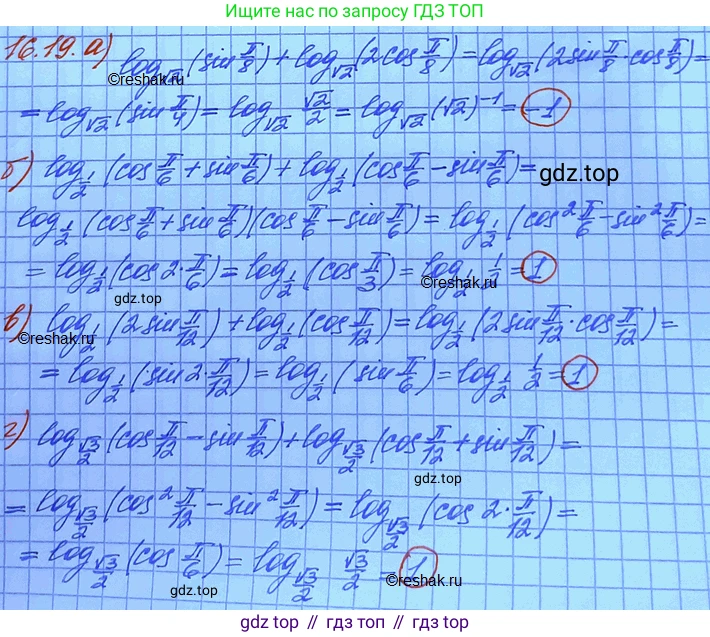 Ищите нас по запросу ГДЗ ТОП
16.19. а) log_√2 (sin π/8) + log_√2 (2cos π/8) = log_√2 (2sin π/8 · cos π/8) =
©reshak.ru
= log_√2 (sin π/4) = log_√2 √2/2 = log_√2 (√2)^-1 = -1
б) log_1/2 (cos π/6 + sin π/6) + log_1/2 (cos π/6 - sin π/6) =
gdz.top
log_1/2 (cos π/6 + sin π/6)(cos π/6 - sin π/6) = log_1/2 (cos² π/6 - sin² π/6) =
= log_1/2 (cos 2·π/6) = log_1/2 (cos π/3) = log_1/2 1/2 = 1
©reshak.ru
gdz.top
в) log_1/2 (2sin π/12) + log_1/2 (cos π/12) = log_1/2 (2sin π/12 · cos π/12) =
©reshak.ru
= log_1/2 (sin 2·π/12) = log_1/2 (sin π/6) = log_1/2 1/2 = 1
г) log_√3/2 (cos π/12 - sin π/12) + log_√3/2 (cos π/12 + sin π/12) =
= log_√3/2 (cos² π/12 - sin² π/12) = log_√3/2 (cos 2·π/12) =
= log_√3/2 (cos π/6) = log_√3/2 √3/2 = 1
©reshak.ru
gdz.top
gdz топ // гдз топ // gdz.top